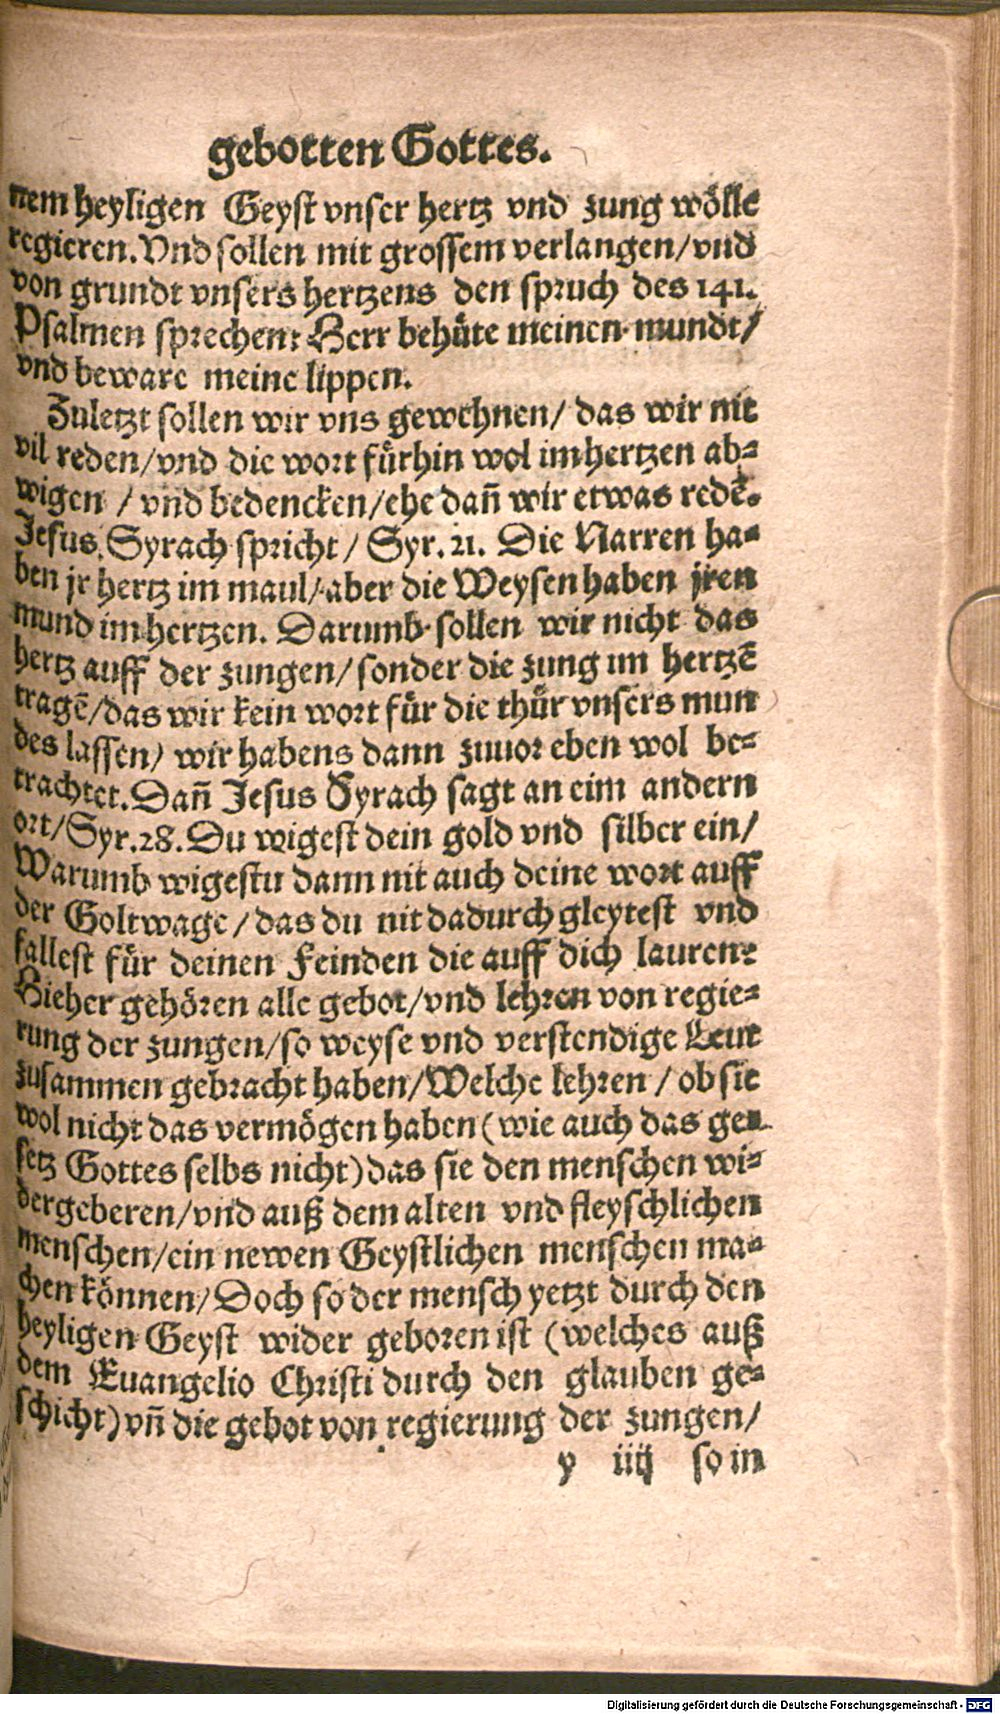 gebotten Gottes.
nem heyligen Geyst vnser hertz vnd zung wölle
regieren. Vnd sollen mit grossem verlangen/vnd
von grundt vnsers hertzens den spruch des 141.
Psalmen sprechen: Herr behüte meinen mundt/
vnd beware meine lippen.
Zuletzt sollen wir vns gewehnen/ das wir nit
vil reden/vnd die wort fürhin wol im hertzen ab-
wigen / vnd bedencken/ehe dañ wir etwas redẽ.
Jesus Syrach spricht / Syr. 21. Die Narren ha-
ben jr hertz im maul/ aber die Weysen haben jren
mund im hertzen. Darumb sollen wir nicht das
hertz auff der zungen/ sonder die zung im hertzẽ
tragẽ/das wir kein wort für die thür vnsers mun
des lassen/ wir habens dann zuuor eben wol be-
trachtet. Dañ Jesus Syrach sagt an eim andern
ort/Syr. 28. Du wigest dein gold vnd silber ein/
Warumb wigestu dann nit auch deine wort auff
der Goltwage/ das du nit dadurch gleytest vnd
fallest für deinen Feinden die auff dich lauren?
Hieher gehören alle gebot/vnd lehren von regie-
rung der zungen/so weyse vnd verstendige Leut
zusammen gebracht haben/Welche lehren / ob sie
wol nicht das vermögen haben (wie auch das ge-
setz Gottes selbs nicht) das sie den menschen wi-
dergeberen/vnd auß dem alten vnd fleyschlichen
menschen/ein newen Geystlichen menschen ma-
chen können/Doch so der mensch yetzt durch den
heyligen Geyst wider geboren ist (welches auß
dem Euangelio Christi durch den glauben ge-
schicht) vñ die gebot von regierung der zungen/
y iiij so in
Digitalisierung gefördert durch die Deutsche Forschungsgemeinschaft - DFG